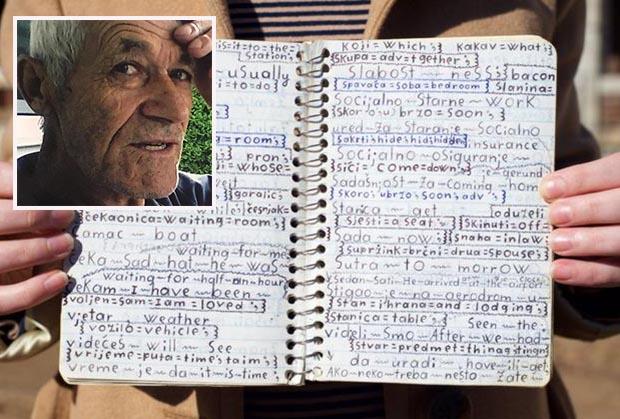 is=it=to=the=
Station's
usually
=i=to=do}
=room's}
pron's
=whose=
garalic's
while's
{čekaonica=waiting=room's}
čamac - boat
waiting - for - me
čeka - sad - hal - he - was
waiting - for - half - an - hour
čekam - I - have - been -
{voljen=sam=I am=loved's}
vjetar - weather
{vozilo=vehicle's}
videćeš - will - see
{vrijeme=puta=time's=taim's}
vreme - je - da - it - is - time
Koji=which's} kakav=what's
{skupa=adv=tgether's}
slabost - ness {bacon
{spavaća=soba=bedroom} slanina=
socijalno - starne - work
{skoro=u=brzo=soon's}
ured - za - staranje - socialno
{sakrti=hide=hid=hidden} insurance
socijalno - osiguranje -
{sići=come=down's} gerund
sadašnost - za - coming - hom
{skoro's=ubrzo=soon's=adv's}
stanka - get oduzeti
{sjesti=a=seat's} {skinuti=off=
sada - now {snaha=in law's
{supružnik=brčni=drua=spouse's}
sutra - to - morrow
sedam - sati - He - arrived - at - the - airport
stigao - je - na - aerodrom - u -
{stan=i=hrana=and=lodging's}
{stanica=table's} seen - the
videli - smo - After - we - had -
{stvar=predmet=thing=stingn
da - uradi - have - ili - get
Ako - neko - treba - nešto - žate -